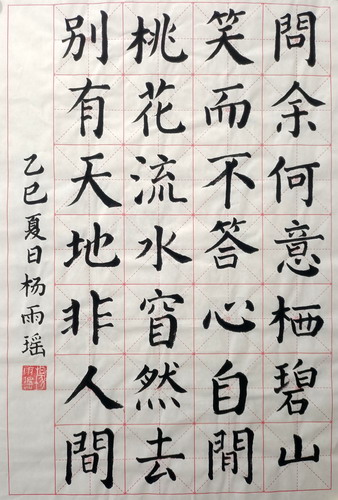 問余何意栖碧山
笑而不答心自閒
桃花流水窅然去
别有天地非人間
乙巳夏日杨雨瑶